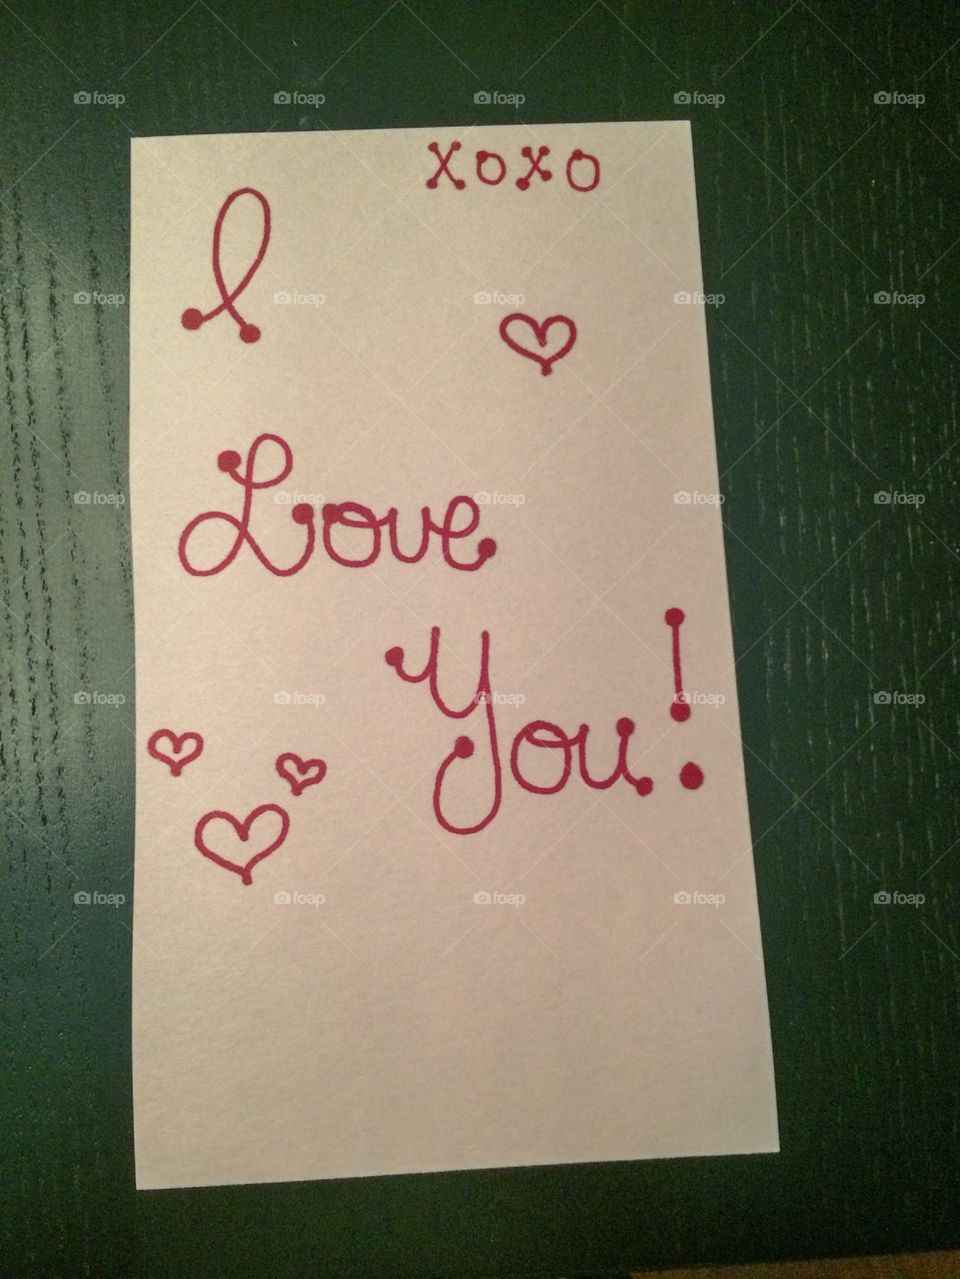 xoxo
I
Love
You!
foap foap foap foap foap
foap foap foap foap foap
foap foap foap foap foap
foap foap foap foap foap
foap foap foap foap foap